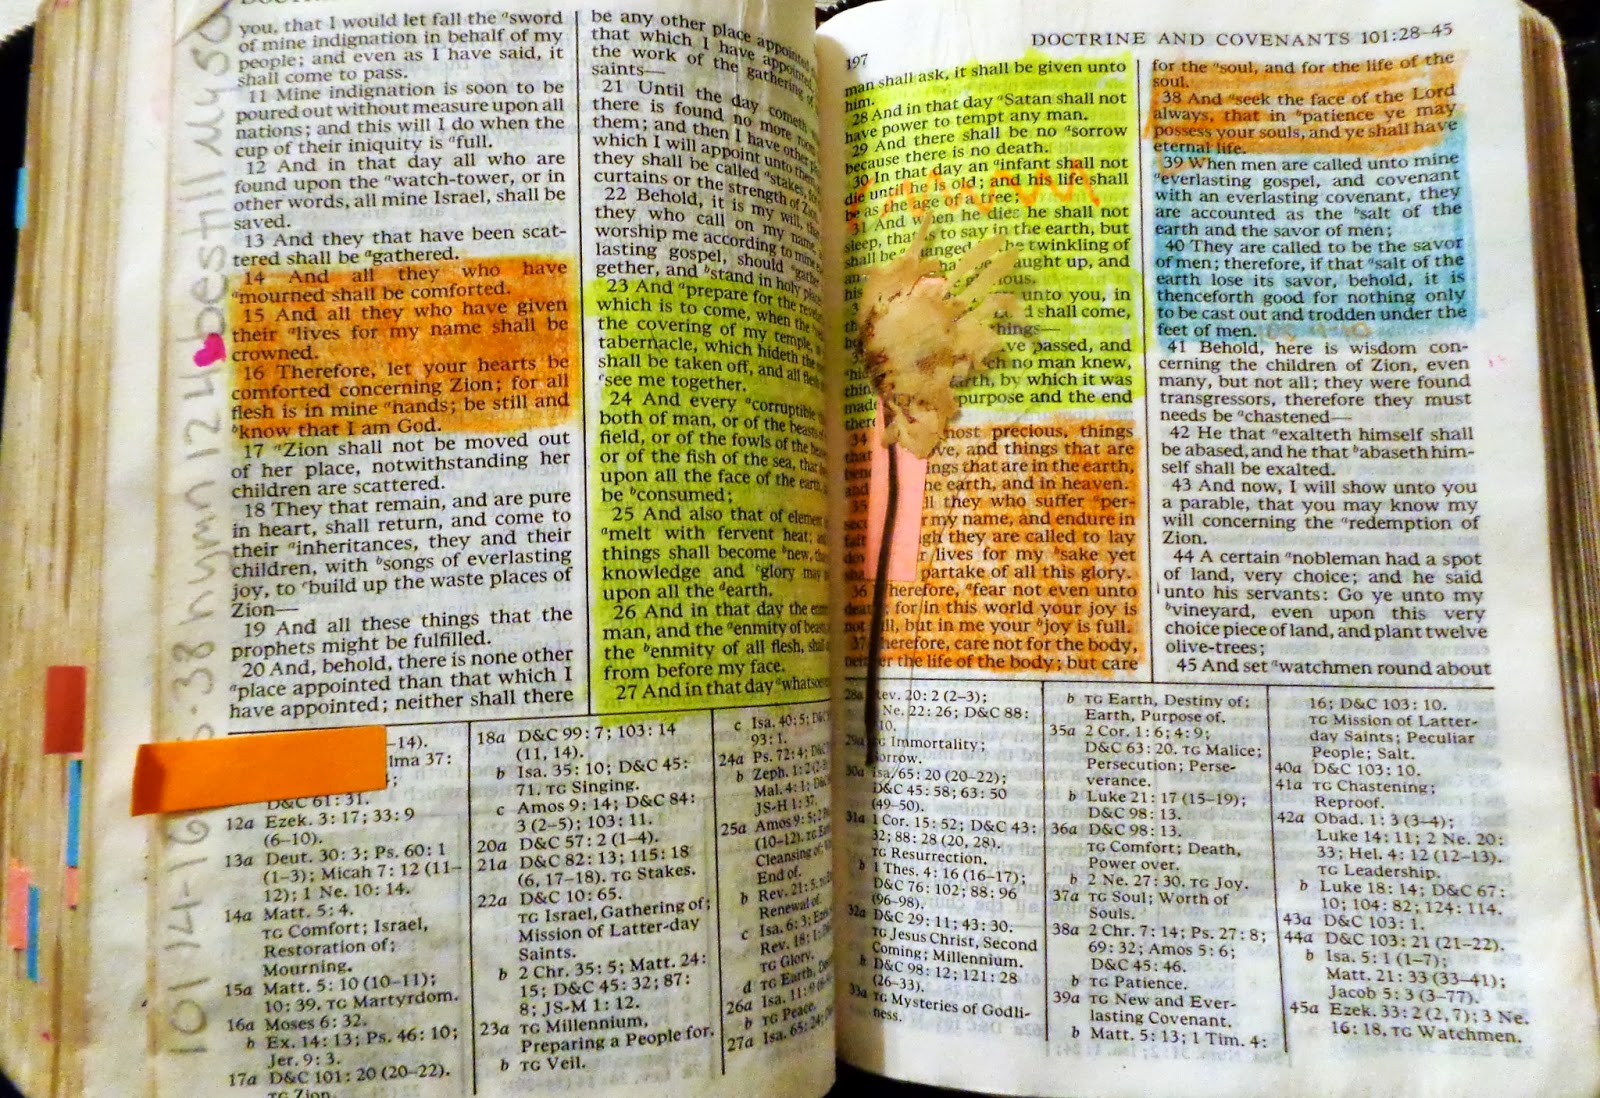 you, that I would let fall the ᵃsword
of mine indignation in behalf of my
people; and even as I have said, it
shall come to pass.
11 Mine indignation is soon to be
poured out without measure upon all
nations; and this will I do when the
cup of their iniquity is ᵃfull.
12 And in that day all who are
found upon the ᵃwatch-tower, or in
other words, all mine Israel, shall be
saved.
13 And they that have been scat-
tered shall be ᵃgathered.
14 And all they who have
ᵃmourned shall be comforted.
15 And all they who have given
their ᵃlives for my name shall be
crowned.
16 Therefore, let your hearts be
comforted concerning Zion; for all
flesh is in mine ᵃhands; be still and
ᵇknow that I am God.
17 ᵃZion shall not be moved out
of her place, notwithstanding her
children are scattered.
18 They that remain, and are pure
in heart, shall return, and come to
their ᵃinheritances, they and their
children, with ᵇsongs of everlasting
joy, to ᶜbuild up the waste places of
Zion—
19 And all these things that the
prophets might be fulfilled.
20 And, behold, there is none other
ᵃplace appointed than that which I
have appointed; neither shall there
be any other place appointed
that which I have appointed,
the work of the gathering of
saints—
21 Until the day cometh
there is found no more
them; and then I have other
which I will appoint unto
they shall be called ᵃstakes,
curtains or the strength of Zion
22 Behold, it is my will, that
they who call on my name,
worship me according to mine
lasting gospel, should ᵃgather
gether, and ᵇstand in holy
23 And ᵃprepare for the
which is to come, when the
the covering of my temple,
tabernacle, which hideth the
shall be taken off, and all flesh
ᶜsee me together.
24 And every ᵃcorruptible
both of man, or of the beasts
field, or of the fowls of the
or of the fish of the sea, that
upon all the face of the earth,
be ᵇconsumed;
25 And also that of element
ᵃmelt with fervent heat;
things shall become ᵇnew,
knowledge and ᶜglory may
upon all the ᵈearth.
26 And in that day the
man, and the ᵃenmity of beasts,
the ᵇenmity of all flesh,
from before my face.
27 And in that day ᵃ
–14).
lma 37:
D&C 61: 31.
12a Ezek. 3: 17; 33: 9
(6–10).
13a Deut. 30: 3; Ps. 60: 1
(1–3); Micah 7: 12 (11–
12); 1 Ne. 10: 14.
14a Matt. 5: 4.
TG Comfort; Israel,
Restoration of;
Mourning.
15a Matt. 5: 10 (10–11);
10: 39. TG Martyrdom.
16a Moses 6: 32.
b Ex. 14: 13; Ps. 46: 10;
Jer. 9: 3.
17a D&C 101: 20 (20–22).
TG Zion.
18a D&C 99: 7; 103: 14
(11, 14).
b Isa. 35: 10; D&C 45:
71. TG Singing.
c Amos 9: 14; D&C 84:
3 (2–5); 103: 11.
20a D&C 57: 2 (1–4).
21a D&C 82: 13; 115: 18
(6, 17–18). TG Stakes.
22a D&C 10: 65.
TG Israel, Gathering of;
Mission of Latter-day
Saints.
b 2 Chr. 35: 5; Matt. 24:
15; D&C 45: 32; 87:
8; JS-M 1: 12.
23a TG Millennium,
Preparing a People for.
b TG Veil.
c Isa. 40: 5;
93: 1.
24a Ps. 72: 4;
b Zeph. 1: 2
Mal. 4: 1;
JS-H 1: 37.
25a Amos 9: 5;
(10–12). TG
Cleansing of;
End of.
b Rev. 21: 5.
Renewal of.
c Isa. 6: 3;
Rev. 18: 1;
TG Glory.
d TG Earth,
26a Isa. 11: 9
b TG Peace.
27a Isa. 65: 24;
hymn 124 be still My So
197
DOCTRINE AND COVENANTS 101:28–45
man shall ask, it shall be given unto
him.
28 And in that day ᵃSatan shall not
have power to tempt any man.
29 And there shall be no ᵃsorrow
because there is no death.
30 In that day an ᵃinfant shall not
die until he is old; and his life shall
be as the age of a tree;
31 And when he dies he shall not
sleep, that is to say in the earth, but
shall be the twinkling of
aught up, and
his
unto you, in
shall come,
things—
ve passed, and
ch no man knew,
arth, by which it was
made purpose and the end
34 most precious, things
that ove, and things that are
ings that are in the earth,
and he earth, and in heaven.
35 ll they who suffer ᵃper-
r my name, and endure in
gh they are called to lay
r lives for my ᵃsake yet
partake of all this glory.
36 herefore, ᵃfear not even unto
death; for in this world your joy is
not ll, but in me your ᵇjoy is full.
37 herefore, care not for the body,
er the life of the body; but care
for the ᵃsoul, and for the life of the
soul.
38 And ᵃseek the face of the Lord
always, that in ᵇpatience ye may
possess your souls, and ye shall have
eternal life.
39 When men are called unto mine
ᵃeverlasting gospel, and covenant
with an everlasting covenant, they
are accounted as the ᵇsalt of the
earth and the savor of men;
40 They are called to be the savor
of men; therefore, if that ᵃsalt of the
earth lose its savor, behold, it is
thenceforth good for nothing only
to be cast out and trodden under the
feet of men.
41 Behold, here is wisdom con-
cerning the children of Zion, even
many, but not all; they were found
transgressors, therefore they must
needs be ᵃchastened—
42 He that ᵃexalteth himself shall
be abased, and he that ᵇabaseth him-
self shall be exalted.
43 And now, I will show unto you
a parable, that you may know my
will concerning the ᵃredemption of
Zion.
44 A certain ᵃnobleman had a spot
of land, very choice; and he said
unto his servants: Go ye unto my
ᵇvineyard, even upon this very
choice piece of land, and plant twelve
olive-trees;
45 And set ᵃwatchmen round about
28a Rev. 20: 2 (2–3);
Ne. 22: 26; D&C 88:
10.
29a TG Immortality;
Sorrow.
30a Isa. 65: 20 (20–22);
D&C 45: 58; 63: 50
(49–50).
31a 1 Cor. 15: 52; D&C 43:
32; 88: 28 (20, 28).
TG Resurrection.
b 1 Thes. 4: 16 (16–17);
D&C 76: 102; 88: 96
(96–98).
32a D&C 29: 11; 43: 30.
TG Jesus Christ, Second
Coming; Millennium.
b D&C 98: 12; 121: 28
(26–33).
33a TG Mysteries of Godli-
ness.
b TG Earth, Destiny of;
Earth, Purpose of.
35a 2 Cor. 1: 6; 4: 9;
D&C 63: 20. TG Malice;
Persecution; Perse-
verance.
b Luke 21: 17 (15–19);
D&C 98: 13.
36a D&C 98: 13.
TG Comfort; Death,
Power over.
b 2 Ne. 27: 30. TG Joy.
37a TG Soul; Worth of
Souls.
38a 2 Chr. 7: 14; Ps. 27: 8;
69: 32; Amos 5: 6;
D&C 45: 46.
b TG Patience.
39a TG New and Ever-
lasting Covenant.
b Matt. 5: 13; 1 Tim. 4:
16; D&C 103: 10.
TG Mission of Latter-
day Saints; Peculiar
People; Salt.
40a D&C 103: 10.
41a TG Chastening;
Reproof.
42a Obad. 1: 3 (3–4);
Luke 14: 11; 2 Ne. 20:
33; Hel. 4: 12 (12–13).
TG Leadership.
b Luke 18: 14; D&C 67:
10; 104: 82; 124: 114.
43a D&C 103: 1.
44a D&C 103: 21 (21–22).
b Isa. 5: 1 (1–7);
Matt. 21: 33 (33–41);
Jacob 5: 3 (3–77).
45a Ezek. 33: 2 (2, 7); 3 Ne.
16: 18. TG Watchmen.